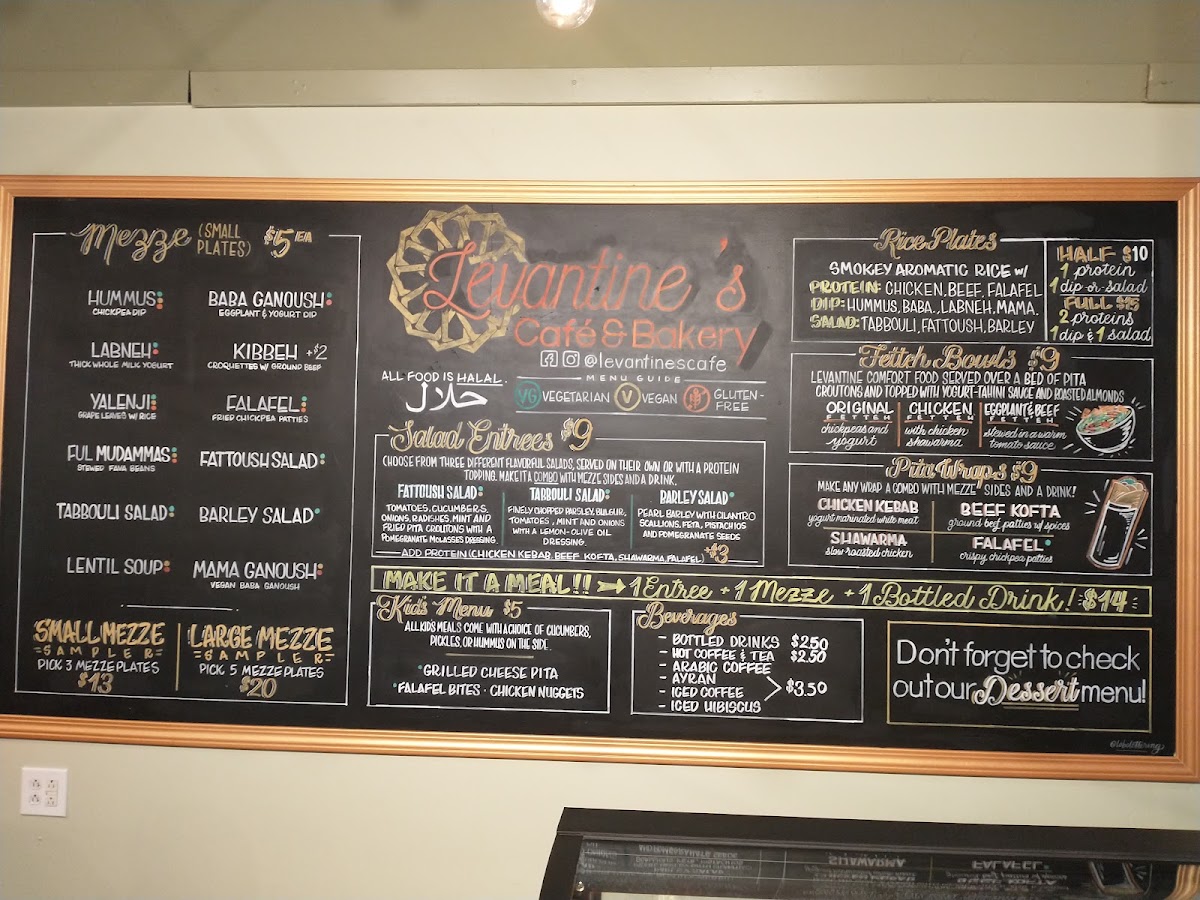 Mezze (SMALL PLATES) $5/EA
HUMMUS
CHICKPEA DIP
BABA GANOUSH
EGGPLANT & YOGURT DIP
LABNEH
THICK WHOLE MILK YOGURT
KIBBEH +$2
CROQUETTES W/ GROUND BEEF
YALENJI
GRAPE LEAVES W/ RICE
FALAFEL
FRIED CHICKPEA PATTIES
FUL MUDAMMAS
STEWED FAVA BEANS
FATTOUSH SALAD
TABBOULI SALAD
BARLEY SALAD
LENTIL SOUP
MAMA GANOUSH
VEGAN BABA GANOUSH
SMALL MEZZE
SAMPLER
PICK 3 MEZZE PLATES
$13
LARGE MEZZE
SAMPLER
PICK 5 MEZZE PLATES
$20
Levantine's
Café & Bakery
@levantinescafe
ALL FOOD IS HALAL.
حلال
MENU GUIDE
VG VEGETARIAN V VEGAN GLUTEN-FREE
Salad Entrees $9
CHOOSE FROM THREE DIFFERENT FLAVORFUL SALADS, SERVED ON THEIR OWN OR WITH A PROTEIN
TOPPING. MAKE IT A COMBO WITH MEZZE SIDES AND A DRINK.
FATTOUSH SALAD
TOMATOES, CUCUMBERS,
ONIONS, RADISHES, MINT AND
FRIED PITA CROUTONS WITH A
POMEGRANATE MOLASSES DRESSING.
TABBOULI SALAD
FINELY CHOPPED PARSLEY, BULGUR,
TOMATOES, MINT AND ONIONS
WITH A LEMON-OLIVE OIL
DRESSING.
BARLEY SALAD
PEARL BARLEY WITH CILANTRO
SCALLIONS, FETA, PISTACHIOS
AND POMEGRANATE SEEDS
ADD PROTEIN (CHICKEN KEBAB, BEEF KOFTA, SHAWARMA, FALAFEL) +$3
Rice Plates
SMOKEY AROMATIC RICE W/
PROTEIN: CHICKEN, BEEF, FALAFEL
DIP: HUMMUS, BABA., LABNEH, MAMA.
SALAD: TABBOULI, FATTOUSH, BARLEY
HALF $10
1 protein
1 dip or salad
FULL $15
2 proteins
1 dip & 1 salad
Fetteh Bowls $9
LEVANTINE COMFORT FOOD SERVED OVER A BED OF PITA
CROUTONS AND TOPPED WITH YOGURT-TAHINI SAUCE AND ROASTED ALMONDS
ORIGINAL
FETTEH
chickpeas and
yogurt
CHICKEN
FETTEH
with chicken
shawarma
EGGPLANT & BEEF
FETTEH
stewed in a warm
tomato sauce
Pita Wraps $9
MAKE ANY WRAP A COMBO WITH MEZZE SIDES AND A DRINK!
CHICKEN KEBAB
yogurt marinated white meat
BEEF KOFTA
ground beef patties w/ spices
SHAWARMA
slow roasted chicken
FALAFEL
crispy chickpea patties
MAKE IT A MEAL!! → 1 Entree + 1 Mezze + 1 Bottled Drink! $14
Kids Menu $5
ALL KIDS MEALS COME WITH A CHOICE OF CUCUMBERS,
PICKLES, OR HUMMUS ON THE SIDE.
GRILLED CHEESE PITA
FALAFEL BITES · CHICKEN NUGGETS
Beverages
- BOTTLED DRINKS $2.50
- HOT COFFEE & TEA $2.50
- ARABIC COFFEE
- AYRAN
- ICED COFFEE
- ICED HIBISCUS
$3.50
Don't forget to check
out our Dessert menu!